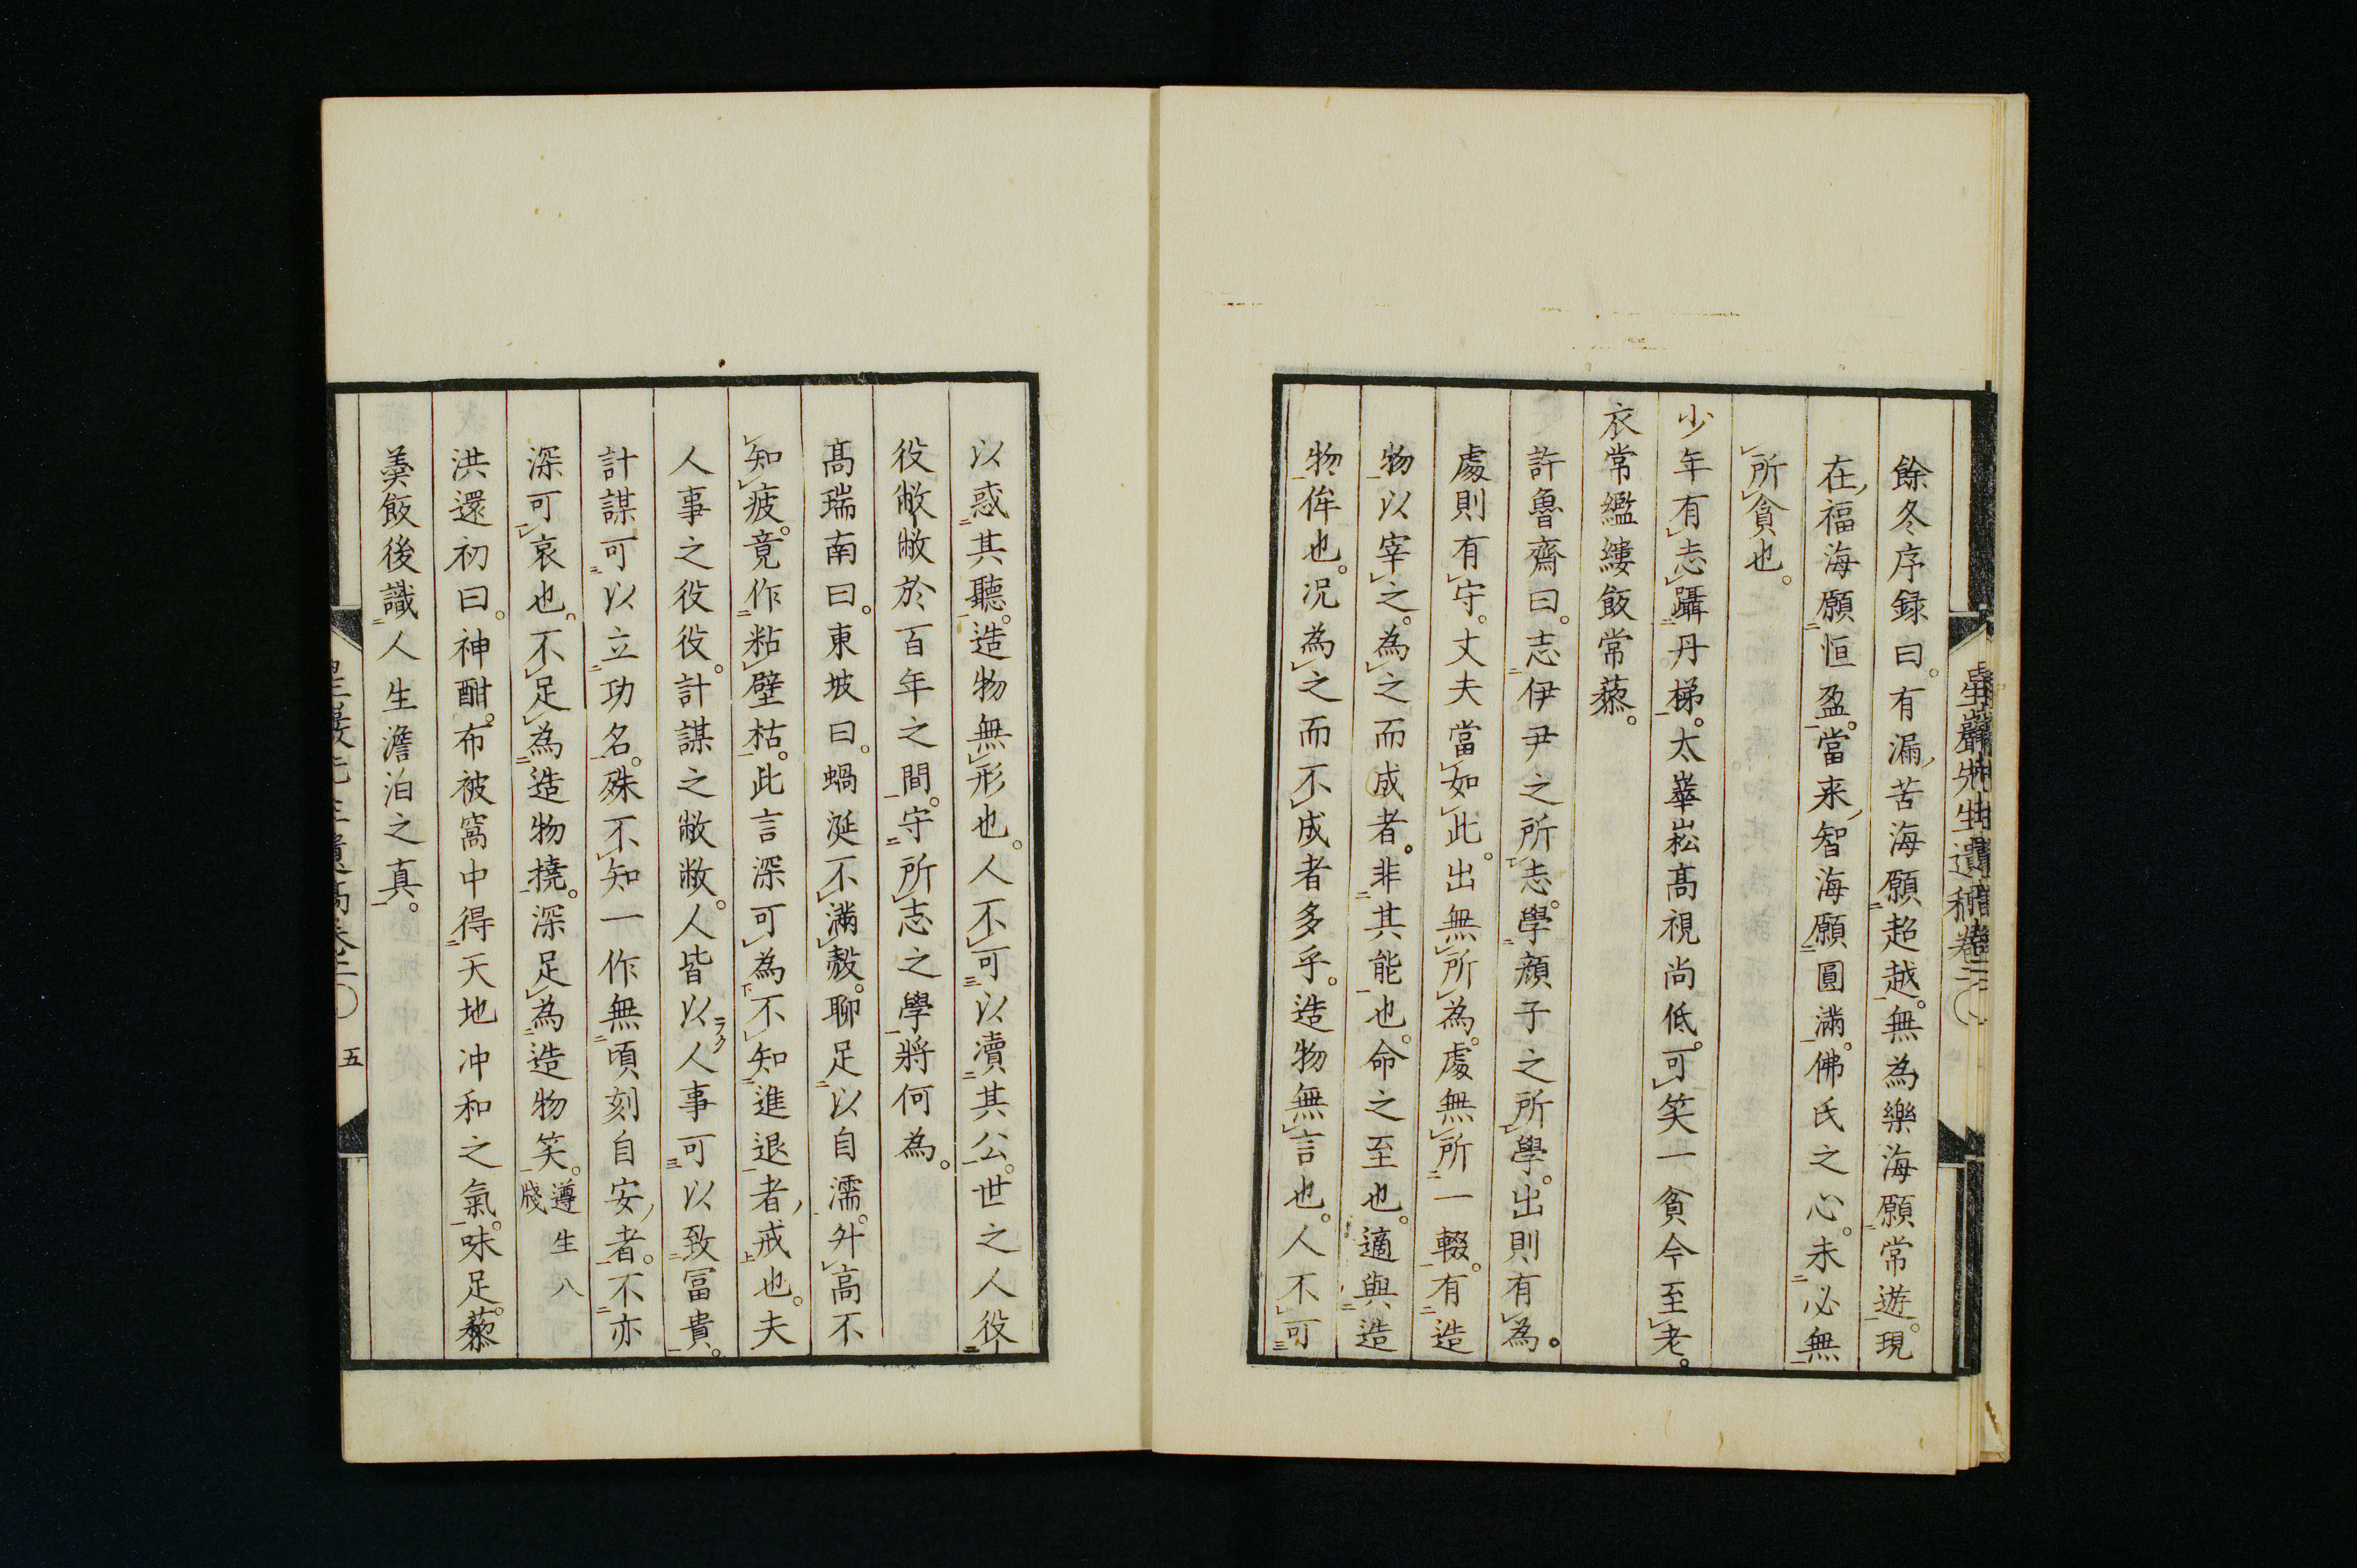 餘冬序録曰。有漏苦海願超越。無為樂海願常遊。現
在福海願恒盈。當来智海願圓滿。佛氏之心。未必無
所貪也。
少年有志躡丹梯。太崋崧髙視尚低。可笑一貧今至老。
衣常繿縷飯常藜。
許魯齋曰。志伊尹之所志。學顔子之所學。出則有為。
處則有守。丈夫當如此。出無所為。處無所一輟。有造
物以宰之。為之而成者。非其能也。命之至也。適與造
物侔也。况為之而不成者多乎。造物無言也。人不可
以惑其聽。造物無形也。人不可以瀆其公。世之人役
役敝敝於百年之間。守所志之學將何為。
髙瑞南曰。東坡曰。蝸涎不滿殼。聊足以自濡。升高不
知疲。竟作粘壁枯。此言深可為不知進退者戒也。夫
人事之役役。計謀之敝敝。人皆以ラク人事可以致冨貴。
計謀可以立功名。殊不知一作無頃刻自安者。不亦
深可哀也。不足為造物撓。深足為造物笑。遵生八
牋
洪還初曰。神酣。布被窩中得天地冲和之氣。味足。藜
羮飯後識人生澹泊之真。
五